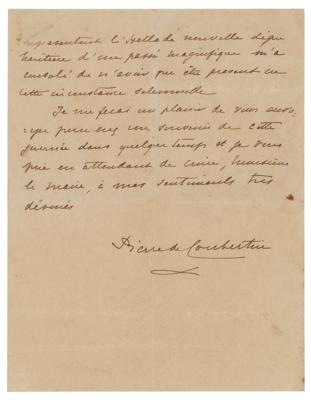 représentant l'Hellade nouvelle digne
héritière d'un passé magnifique m'a
consolé de n'avoir pu être présent en
cette circonstance solennelle
Je me ferai un plaisir de vous
un souvenir de cette
journée dans quelque temps et je vous
prie en attendant de croire, Monsieur
le Maire, à mes sentiments très
dévoués
Pierre de Coubertin